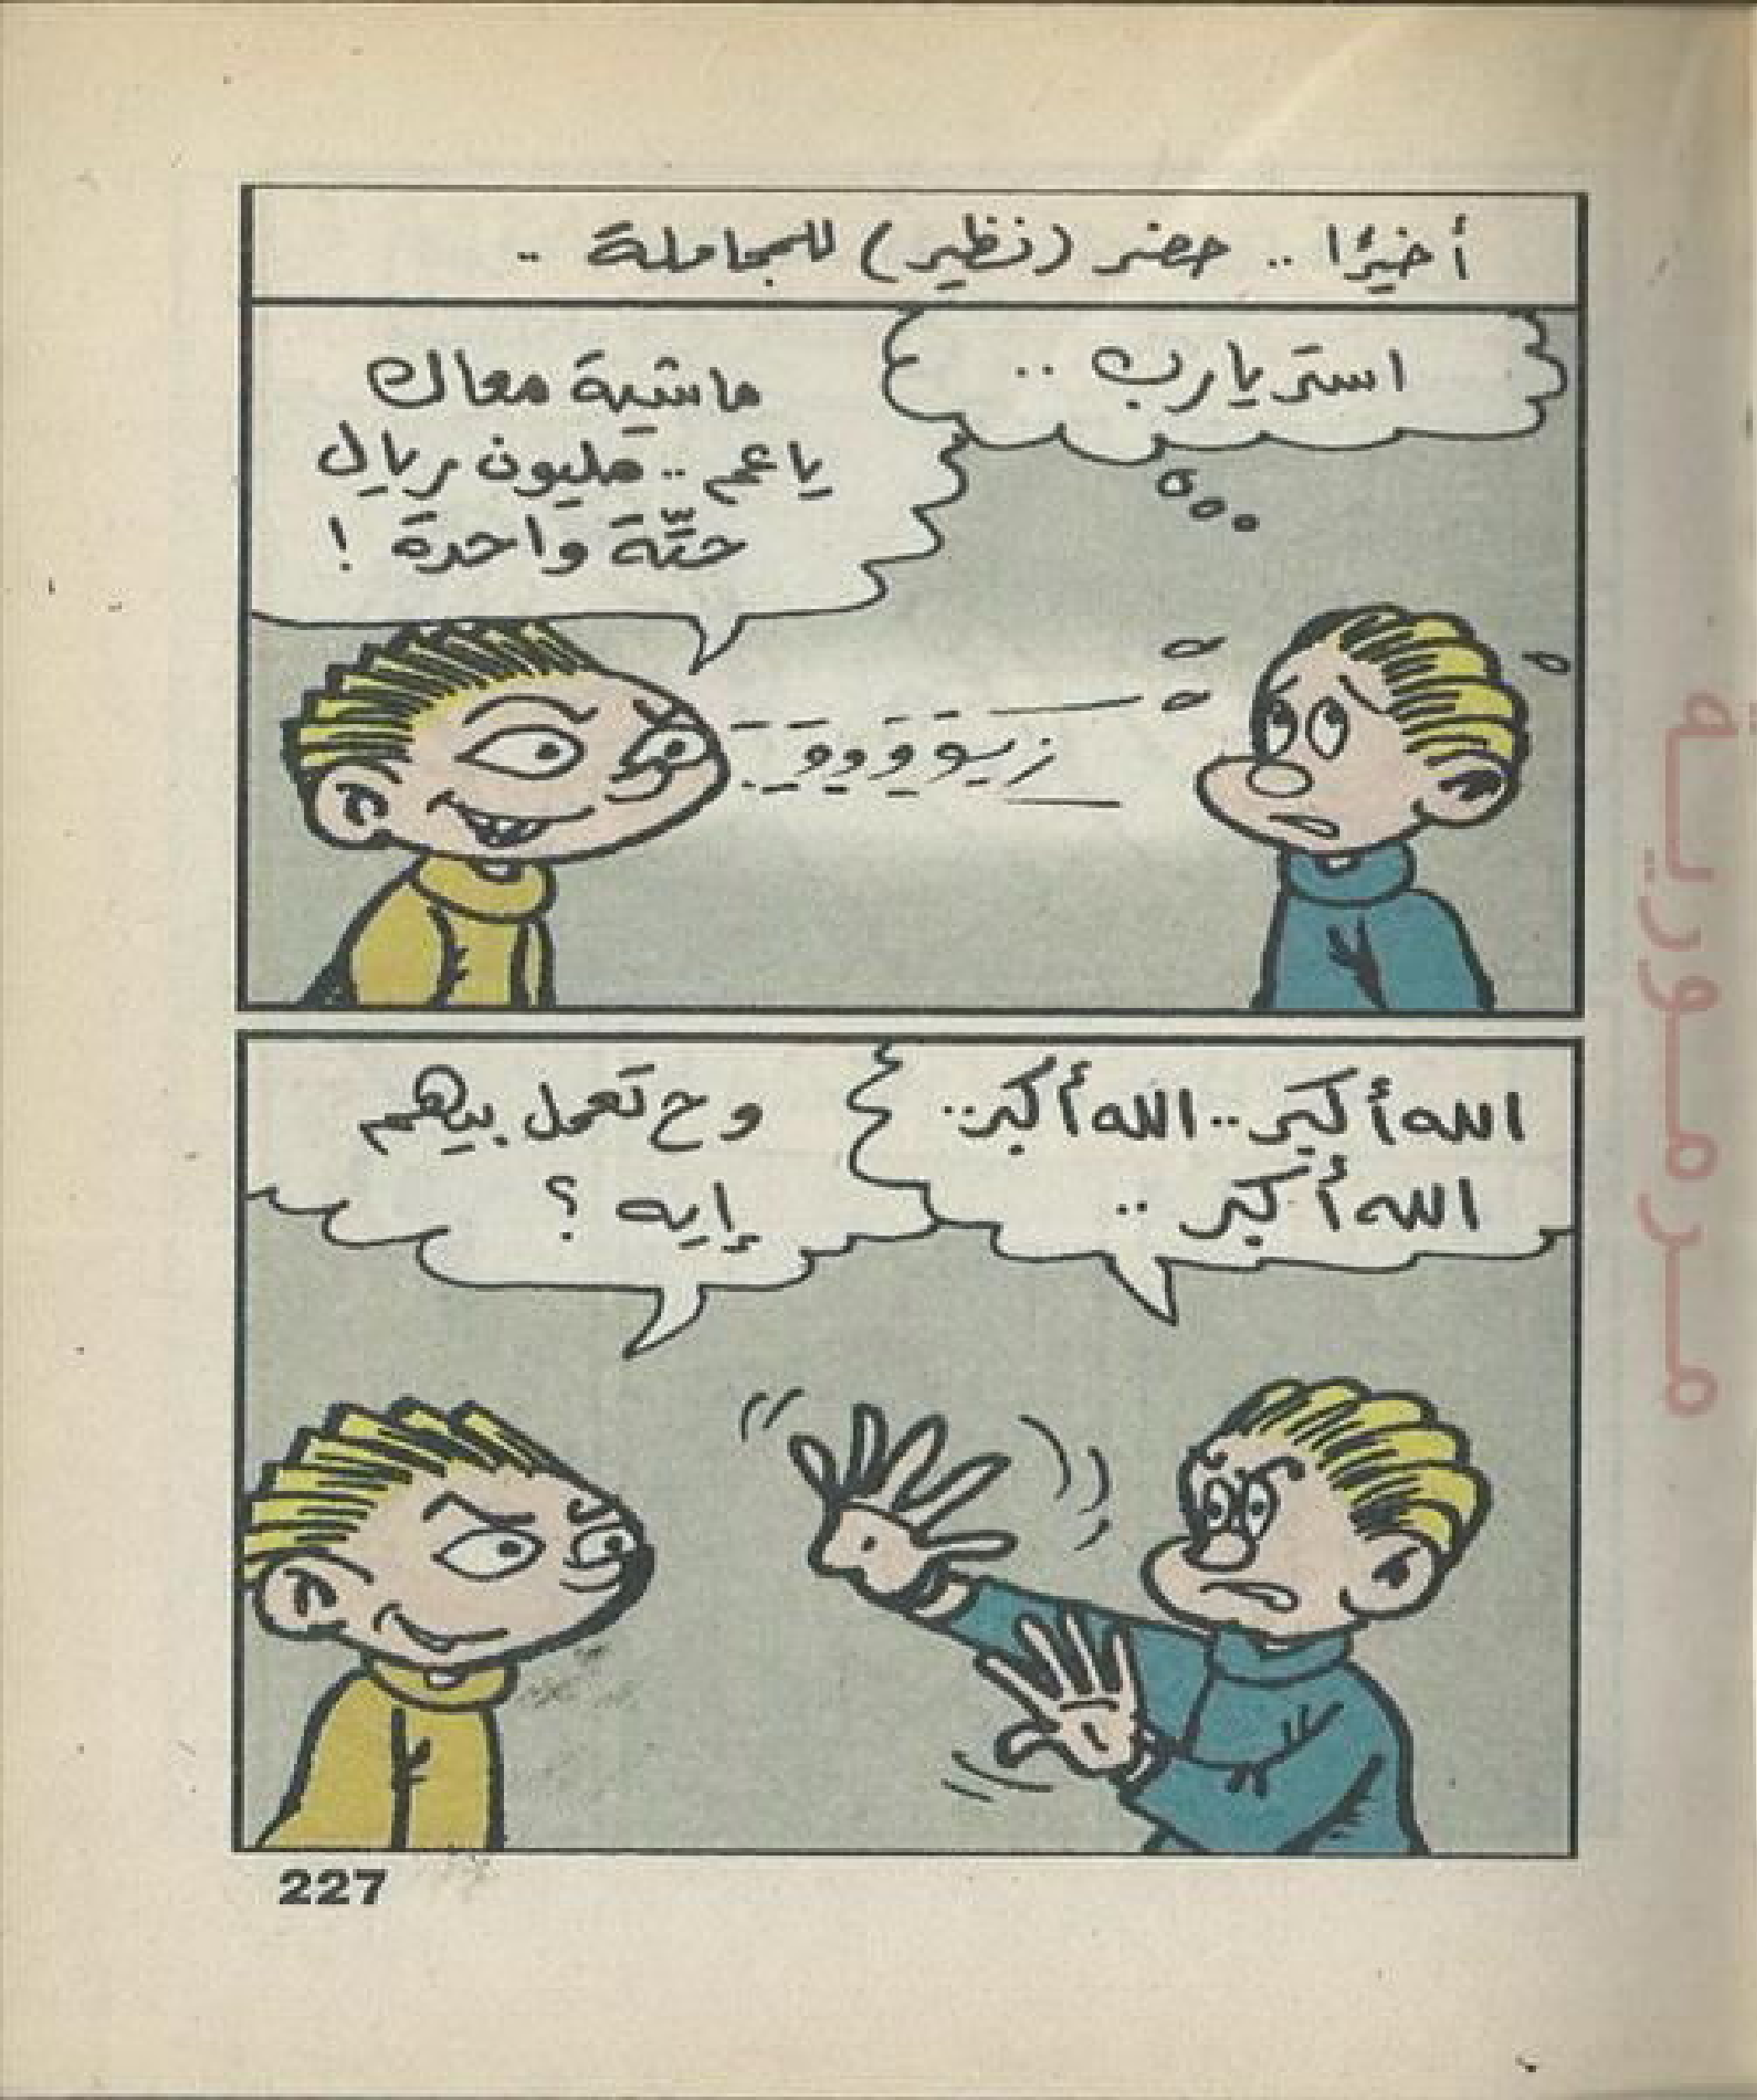 أخيرًا .. حضر (نظير) للمجاملة ..
استر يارب ..
ماشية معاك
ياعم .. مليون ريال
حتّة واحدة !
زيوووو
الله أكبر .. الله أكبر ..
الله أكبر ..
وح تعمل بيهم
إيه ؟
227